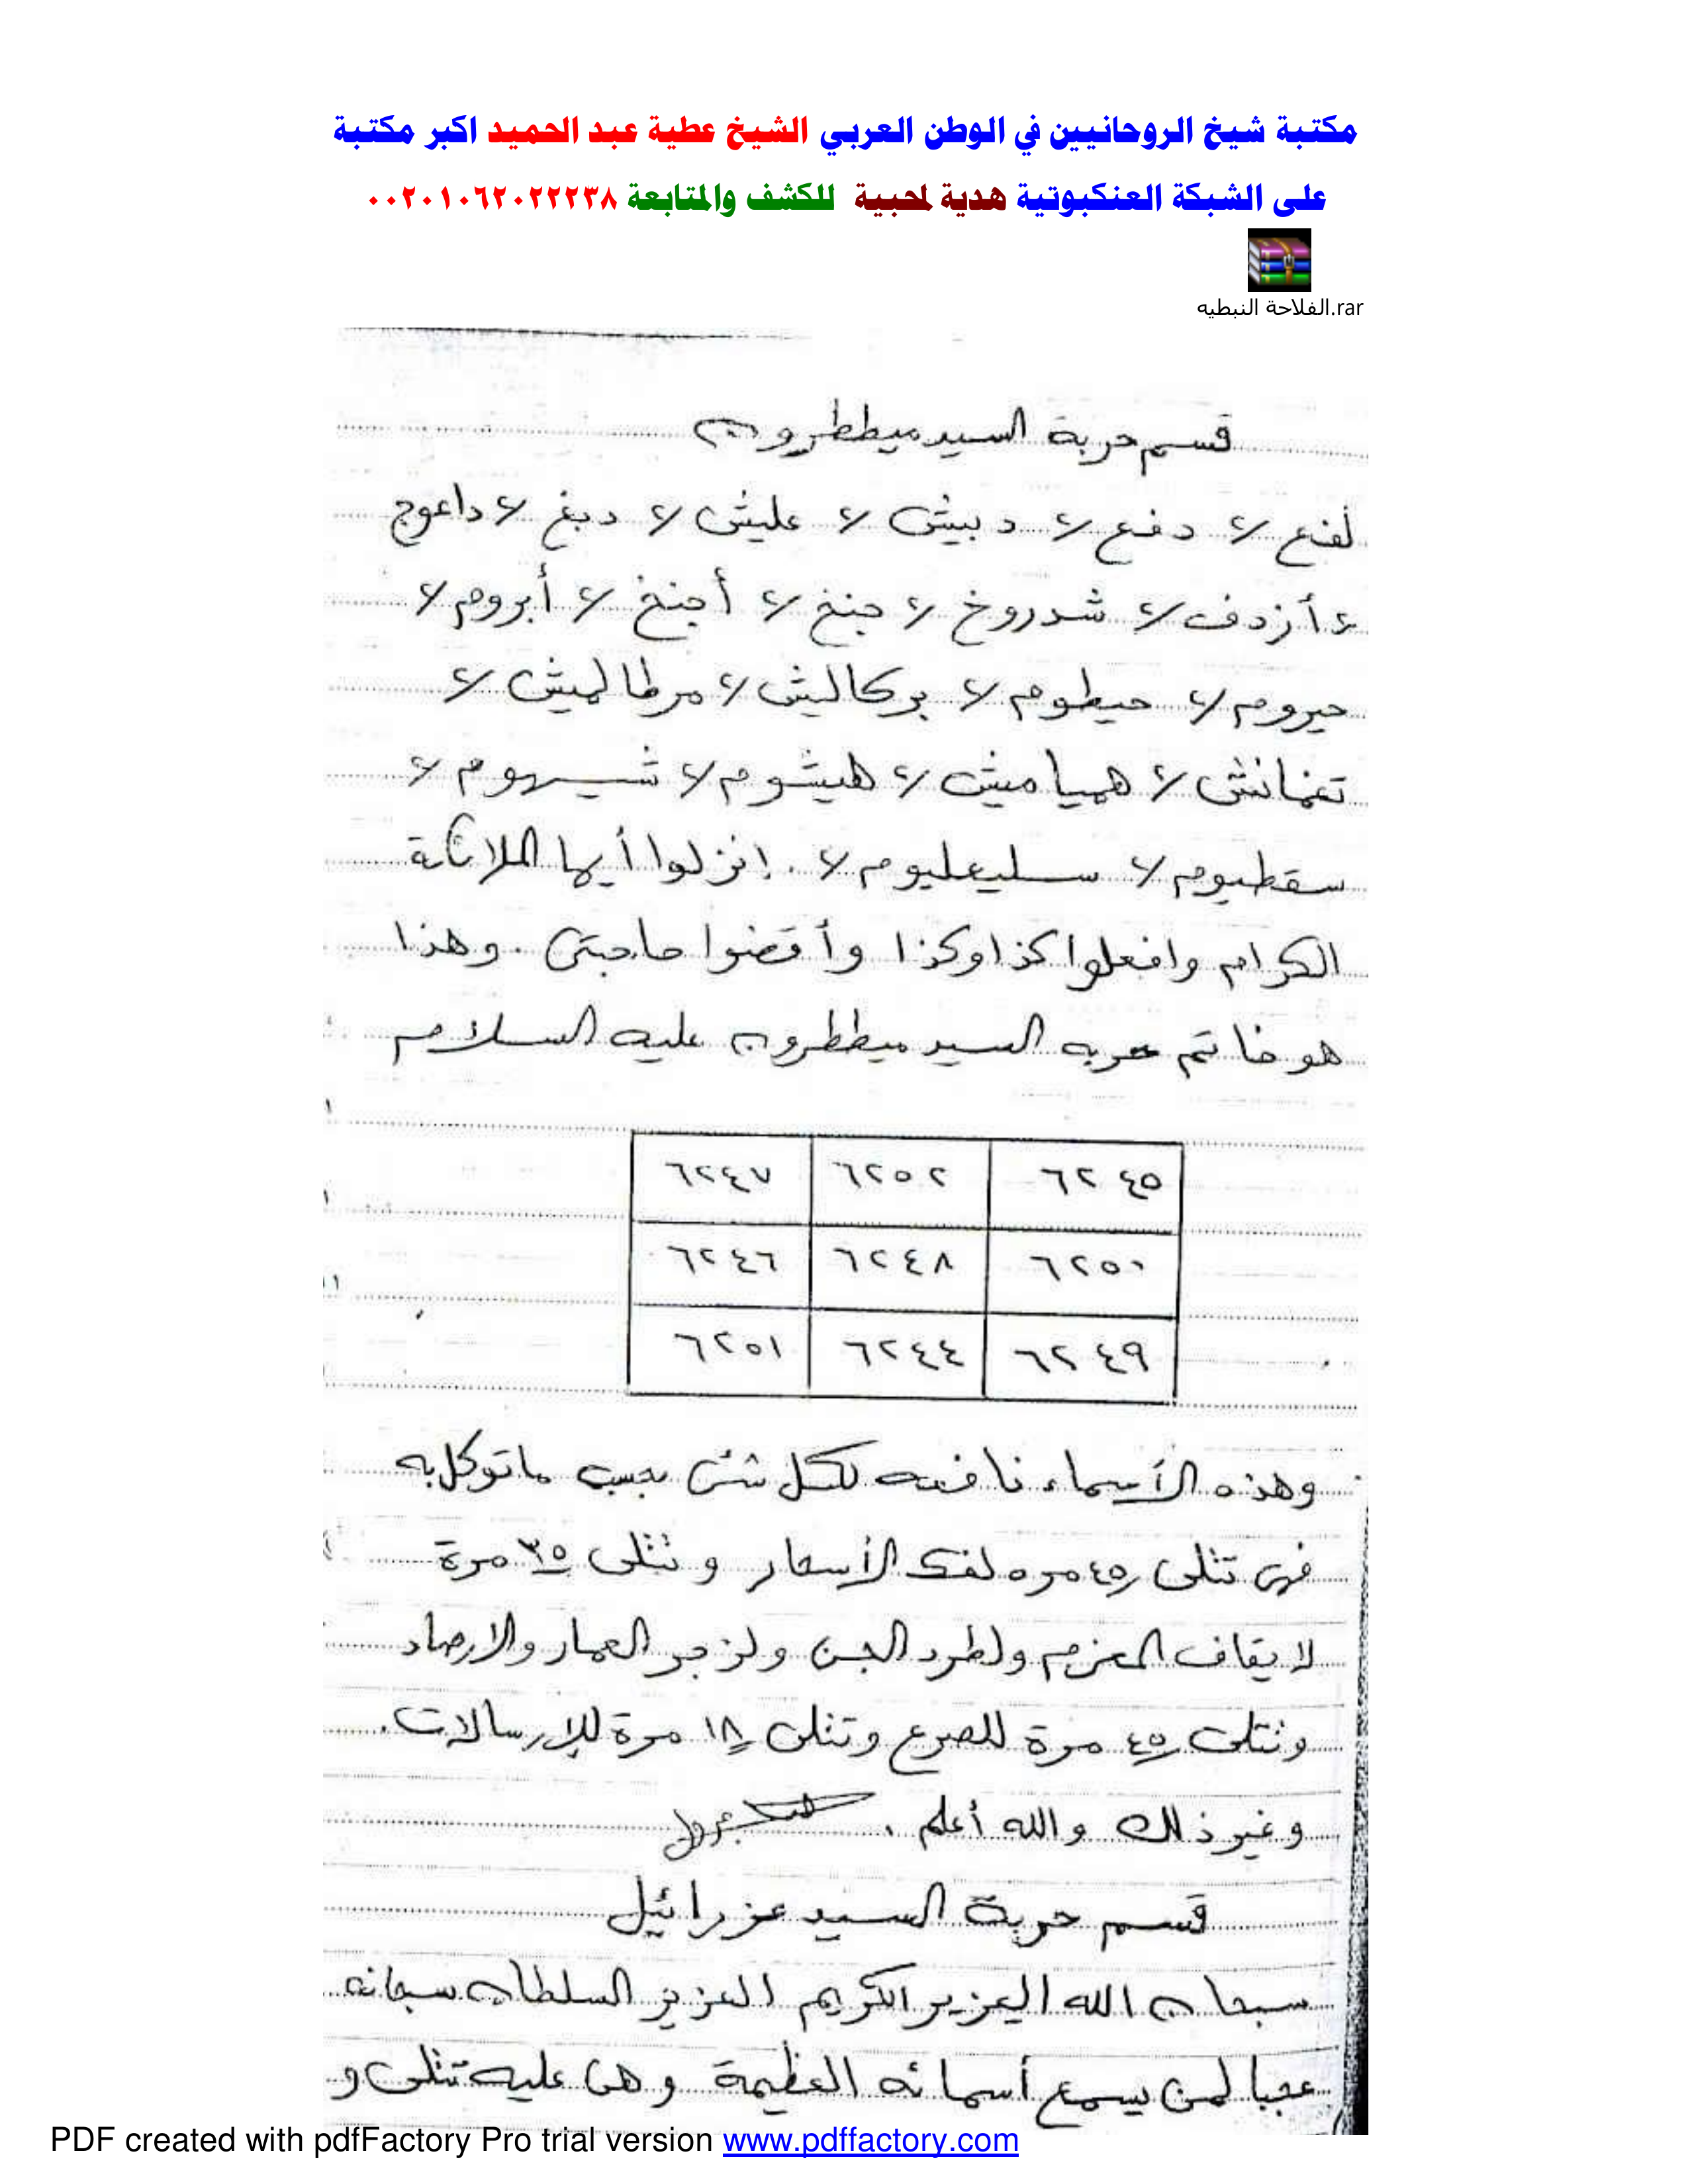 مكتبة شيخ الروحانيين في الوطن العربي الشيخ عطية عبد الحميد اكبر مكتبة
على الشبكة العنكبوتية هدية لمحبية للكشف والمتابعة ٠٠٢٠١٠٦٢٠٢٢٢٣٨
الفلاحة النبطيه.rar
قسم حربة السيد ميططرون
لفنع ٢/ دفنع ٢/ دبيش ٢/ عليش ٢/ دبغ ٢/ داعوج
٢/ أزدف ٢/ شدروخ ٢/ جنخ ٢/ أجنخ ٢/ أبروم ٢/
حيروم ٢/ حيطوم ٢/ بركاليش ٢/ مرطالميش ٢/
تغمانش ٢/ هميا ميش ٢/ هيشوم ٢/ شيهوم ٢/
سقطيوم ٢/ سليعليوم ٢/ . إنزلوا أيها الملائكة
الكرام وافعلوا كذا وكذا وأقضوا حاجتى . وهذا
هو خاتم حربه السيد ميططرون عليه السلام
٦٢٤٥ ٦٢٥٢ ٦٢٤٧
٦٢٥٠ ٦٢٤٨ ٦٢٤٦
٦٢٤٩ ٦٢٤٤ ٦٢٥١
وهذه الأسماء نافعه لكل شئ بحسب ماتوكل به
فهى تتلى ٤٥ مره لفك الأسحار وتتلى ٣٥ مرة
لايقاف المعزم ولطرد الجن ولزجر العمار والارصاد
وتتلى ٤٥ مرة للصرع وتتلى ١٨ مرة للإرسالات.
وغير ذلك والله أعلم .
قسم حربة السيد عزرائيل
سبحان الله العزيز الكريم العزيز السلطان سبحانه
عجبا لمن يسمع أسمائه العظيمة وهى عليه تتلى و
PDF created with pdfFactory Pro trial version www.pdffactory.com